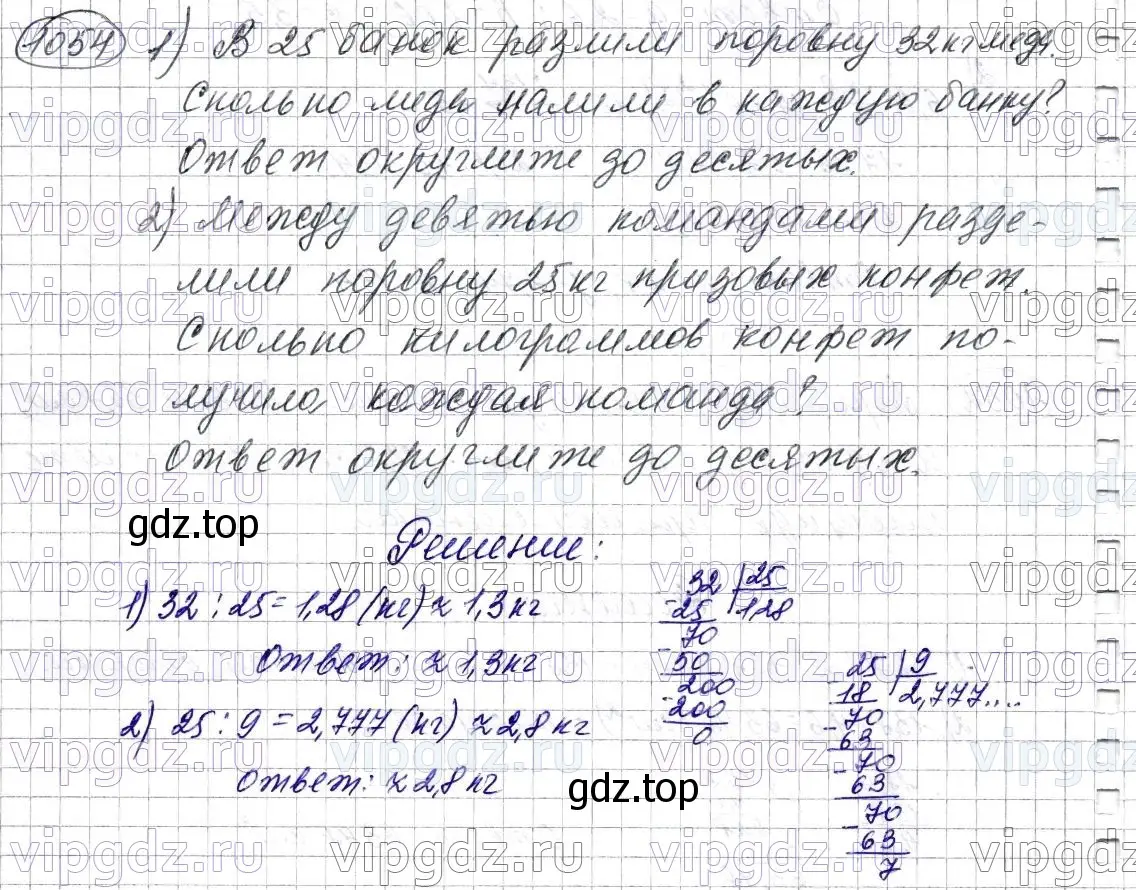 1054 1) В 25 банок разлили поровну 32 кг меда.
Сколько меда налили в каждую банку?
Ответ округлите до десятых.
2) Между девятью командами разде-
лили поровну 25 кг призовых конфет.
Сколько килограммов конфет по-
лучила каждая команда?
Ответ округлите до десятых.
gdz.top
Решение:
1) 32 : 25 = 1,28 (кг) ≈ 1,3 кг
Ответ: ≈ 1,3 кг
2) 25 : 9 = 2,777 (кг) ≈ 2,8 кг
Ответ: ≈ 2,8 кг
32 | 25
- 25 | 1,28
70
- 50
200
- 200
0
25 | 9
- 18 | 2,777...
70
- 63
70
- 63
70
- 63
7
gdz.top
vipgdz.ru